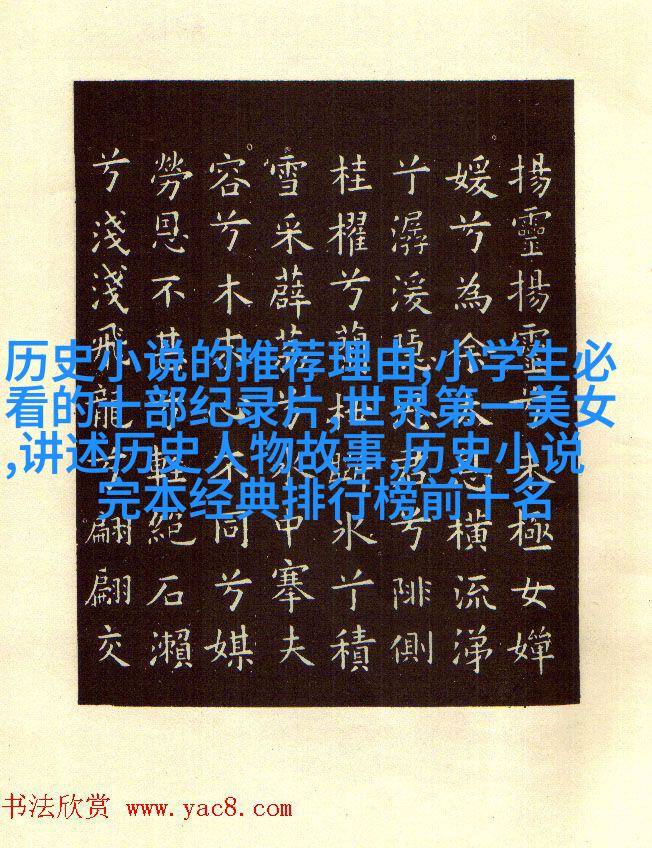 揚靈揚靈兮未極女嬋
媛兮為余太息橫流涕
兮潺湲隱思君兮陫側
桂櫂兮蘭枻斲冰兮積
雪采薜荔兮水中搴夫
容兮木末心不同兮媒
勞恩不甚輕絕石瀨
兮淺淺飛龍兮翩翩交
历史小说的推荐理由,小学生必
看的十部纪录片,世界第一美女
,讲述历史人物故事,历史小说
完本经典排行榜前十名
书法欣赏 www.yac8.com